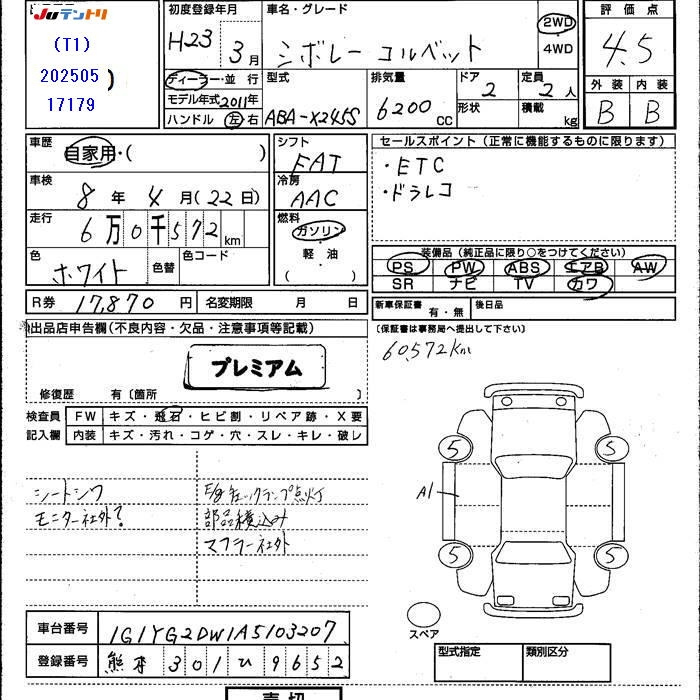 JUテントリ
(T1)
202505
17179
初度登録年月
H23 3月
車名・グレード
シボレー コルベット
2WD
4WD
評価点
4.5
外装 内装
B B
ディーラー・並行
モデル年式2011年
ハンドル 左 右
型式
ABA-X245S
排気量
6200 cc
ドア
2
形状
定員
2人
積載
kg
車歴
自家用・( )
車検
8年 4月(22日)
走行
6万0千572km
色
ホワイト
色替
色コード
シフト
FAT
冷房
AAC
燃料
ガソリン
軽・油
( )
セールスポイント(正常に機能するものに限ります)
・ETC
・ドラレコ
装備品(純正品に限り○をつけてください)
PS PW ABS エアB AW
SR ナビ TV カワ
R券 17,870円 名変期限 月 日
新車保証書 有・無 後日品
(保証書は事務局へ提出して下さい)
出品店申告欄(不良内容・欠品・注意事項等記載)
プレミアム
60,572km
修復歴 有〔箇所 〕
検査員
記入欄
FW キズ・飛石・ヒビ割・リペア跡・X要
内装 キズ・汚れ・コゲ・穴・スレ・キレ・破レ
シートシワ
モニター社外?
E/gチェックランプ点灯
部品積込み
マフラー社外
5 5
A1
5 5
スペア
車台番号 1G1YG2DW1A5103207
登録番号 熊本 301 ひ 9652
型式指定 類別区分
売切